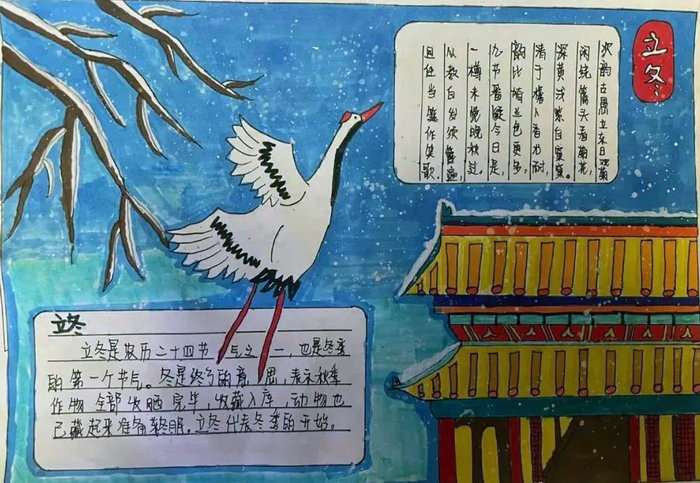 立冬
次韵古愚立冬日观菊
闲绕篱头看菊花,
深黄浅紫自窠窠。
清于檐卜香尤耐,
韵比猗兰色更多,
九节番疑今日是,
一樽未觉晚秋过。
从教白发须簪遍,
且任当筵作笑歌。
立冬
立冬是农历二十四节气之一,也是冬季
的第一个节气。冬是终了的意思,表示秋季
作物全部收晒完毕,收藏入库,动物也
已藏起来准备冬眠。立冬代表冬季的开始。